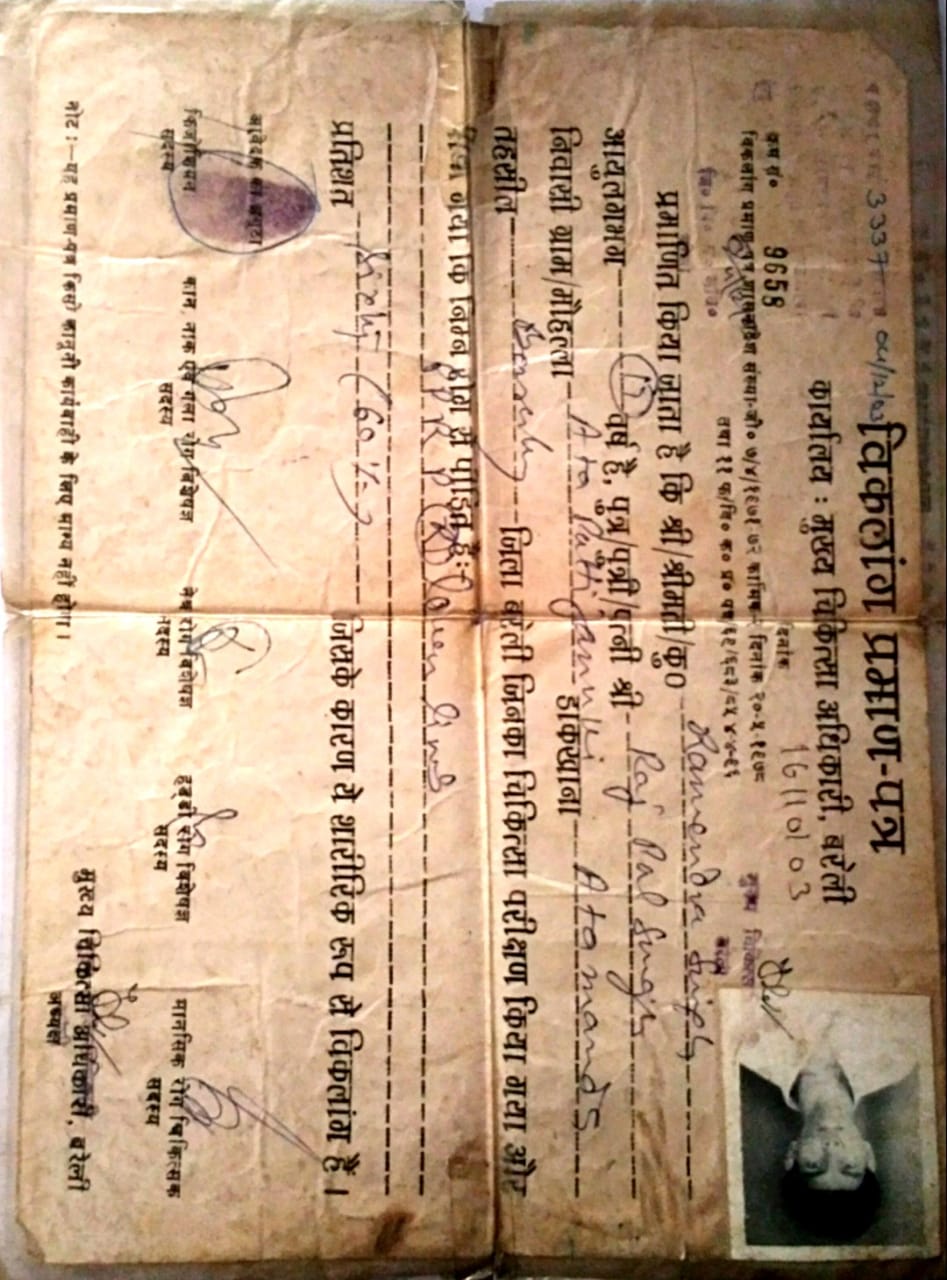 3337 04/2/03
विकलांग प्रमाण-पत्र
कार्यालय : मुख्य चिकित्सा अधिकारी, बरेली
क्रम सं० 9658 दिनांक 16/10/03
विकलांग प्रमाण-पत्र शासकादेश संख्या-जी० ७/४/११७१-७२ कार्मिक- दिनांक २०-५-११७८
प्रमाणित किया जाता है कि श्री/श्रीमती/कु० Ramendra Singh
आयुलगभग वर्ष है, पुत्र/पुत्री/पत्नी श्री Raj Pal Singh
निवासी ग्राम/मौहल्ला Ata Patti Jannubi डाकखाना Atamanda
तहसील जिला बरेली जिनका चिकित्सा परीक्षण किया गया और
पाया गया कि निम्न रोग से पीड़ित है:-
PPRP (R) Lower limb
प्रतिशत Sixty (60%) जिसके कारण ये शारीरिक रूप से विकलांग हैं।
आवेदक का अंगूठा
फिजीशियन कान, नाक एवं गला रोग विशेषज्ञ नेत्र रोग विशेषज्ञ हड्डी रोग विशेषज्ञ मानसिक रोग चिकित्सक
सदस्य सदस्य सदस्य सदस्य सदस्य
मुख्य चिकित्सा अधिकारी, बरेली
अध्यक्ष
नोट :-यह प्रमाण-पत्र किसी कानूनी कार्यवाही के लिए मान्य नहीं होगा।